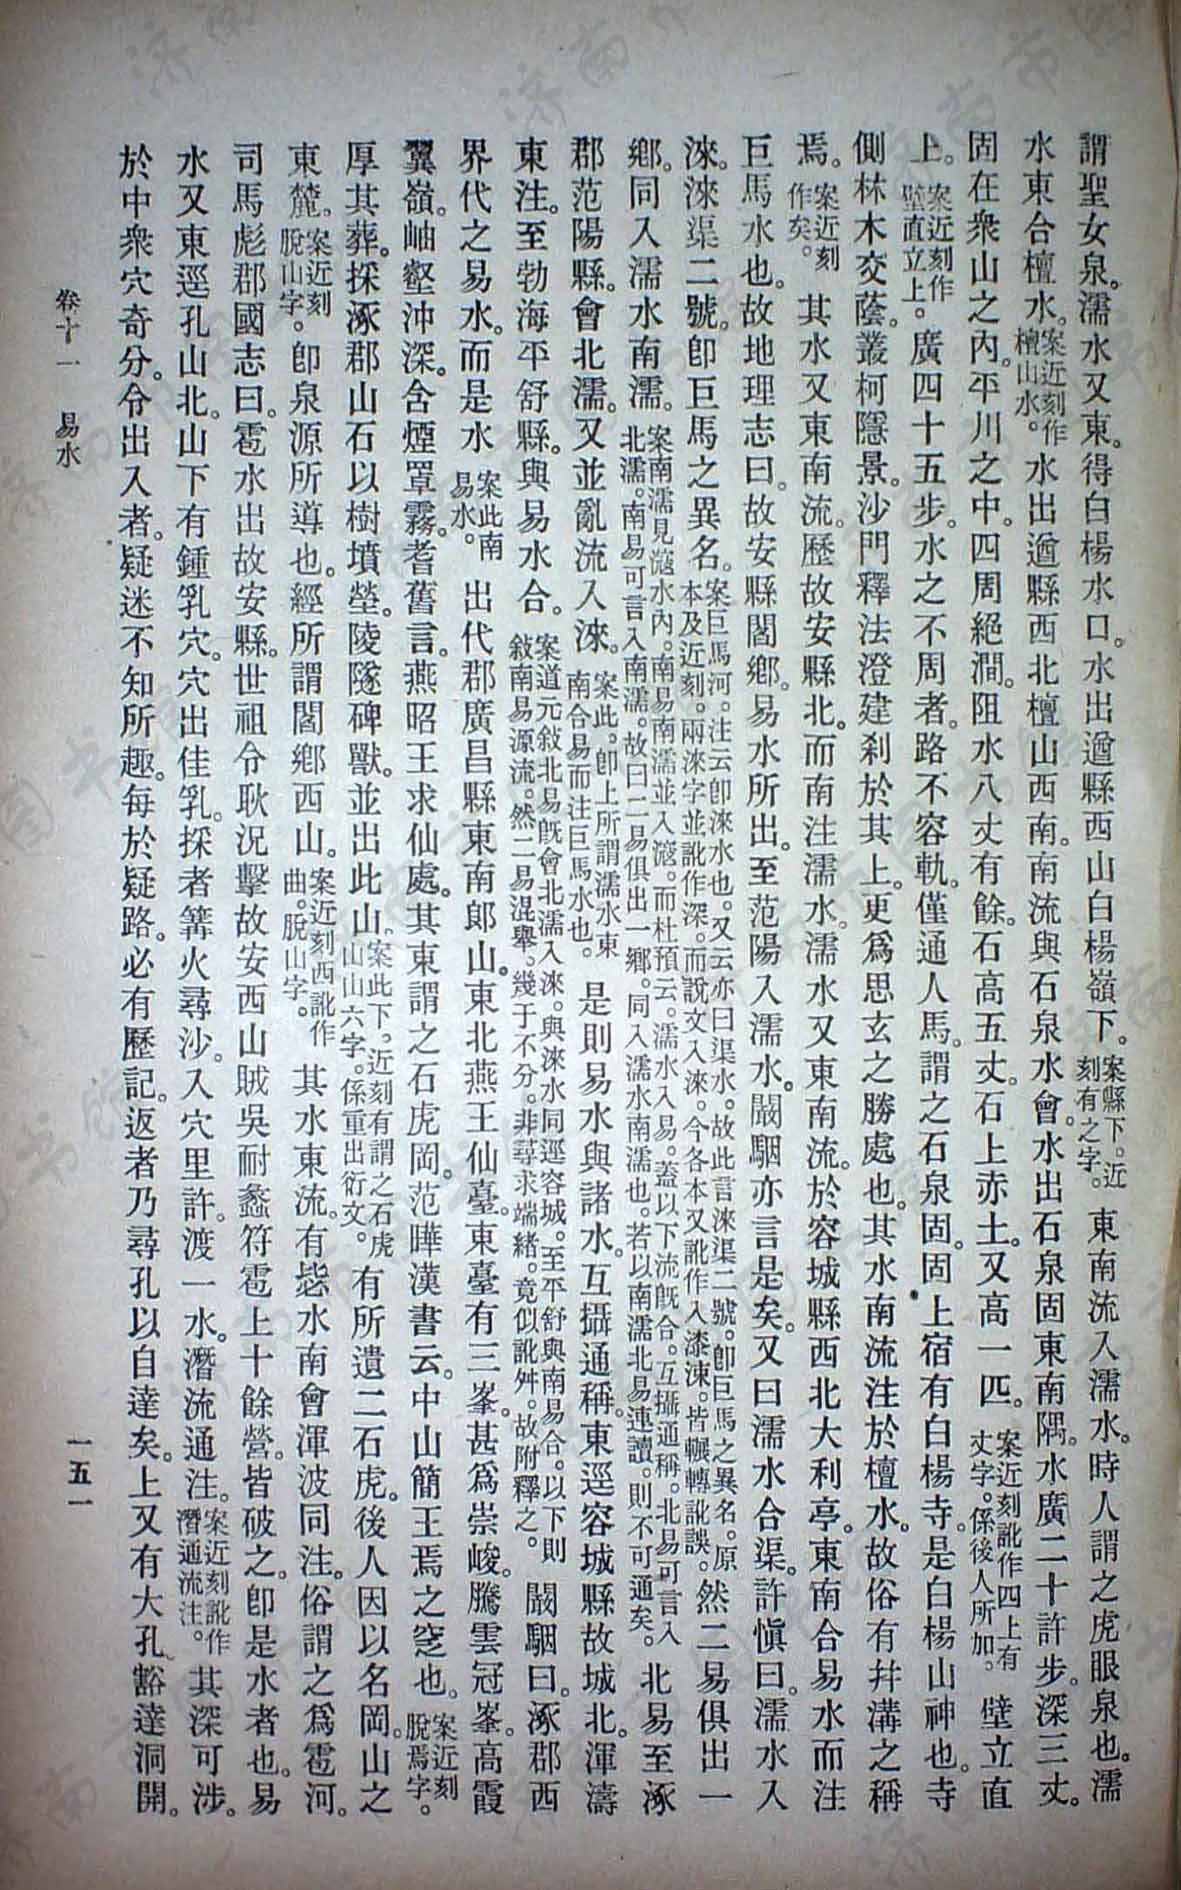 謂聖女泉。濡水又東。得白楊水口。水出遒縣西山白楊嶺下。案縣下。近刻有之字。東南流入濡水。時人謂之虎眼泉也。濡
水東合檀水。案近刻作檀山水。水出遒縣西北檀山西南。南流與石泉水會。水出石泉固東南隅。水廣二十許步。深三丈。
固在衆山之內。平川之中。四周絕澗。阻水八丈有餘。石高五丈。石上赤土。又高一匹。案近刻訛作四上有丈字。係後人所加。壁立直
上。案近刻作壁直立上。廣四十五步。水之不周者。路不容軌。僅通人馬。謂之石泉固。固上宿有白楊寺。是白楊山神也。寺
側林木交蔭。叢柯隱景。沙門釋法澄建刹於其上。更爲思玄之勝處也。其水南流注於檀水。故俗有幷溝之稱
焉。案近刻作矣。其水又東南流。歷故安縣北。而南注濡水。濡水又東南流。於容城縣西北大利亭。東南合易水而注
巨馬水也。故地理志曰。故安縣閻鄉。易水所出。至范陽入濡水。闞駰亦言是矣。又曰濡水合渠。許愼曰。濡水入
淶。淶渠二號。卽巨馬之異名。案巨馬河。注云卽淶水也。又云亦曰渠水。故此言淶渠二號。卽巨馬之異名。原本及近刻。兩淶字並訛作深。而說文入淶。今各本又訛作入漆涑。皆輾轉訛誤。然二易俱出一
鄉。同入濡水南濡。案南濡見滱水內。南易南濡並入滱。而杜預云。濡水入易。蓋以下流旣合。互攝通稱。北易可言入北濡。南易可言入南濡。故曰二易俱出一鄉。同入濡水南濡也。若以南濡北易連讀。則不可通矣。北易至涿
郡范陽縣。會北濡。又並亂流入淶。案此。卽上所謂濡水東南合易而注巨馬水也。是則易水與諸水。互攝通稱。東逕容城縣故城北。渾濤
東注。至勃海平舒縣。與易水合。案道元敍北易旣會北濡入淶。與淶水同逕容城。至平舒與南易合。以下則敍南易源流。然二易混舉。幾于不分。非尋求端緒。竟似訛舛。故附釋之。闞駰曰。涿郡西
界代之易水。而是水案此南易水。出代郡廣昌縣東南郞山。東北燕王仙臺。東臺有三峯。甚爲崇峻。騰雲冠峯。高霞
翼嶺。岫壑沖深。含煙罩霧。耆舊言。燕昭王求仙處。其東謂之石虎岡。范曄漢書云。中山簡王焉之窆也。案近刻脫焉字。
厚其葬。採涿郡山石以樹墳塋。陵隧碑獸。並出此山。案此下。近刻有謂之石虎山山六字。係重出衍文。有所遺二石虎。後人因以名岡。山之
東麓。案近刻脫山字。卽泉源所導也。經所謂閻鄉西山。案近刻西訛作曲。脫山字。其水東流。有毖水南會渾波同注。俗謂之爲雹河。
司馬彪郡國志曰。雹水出故安縣。世祖令耿況擊故安西山賊吳耐蠡符雹上十餘營。皆破之。卽是水者也。易
水又東逕孔山北。山下有鍾乳穴。穴出佳乳。採者篝火尋沙。入穴里許。渡一水。潛流通注。案近刻訛作潛通流注。其深可涉。
於中衆穴奇分。令出入者。疑迷不知所趣。每於疑路。必有歷記。返者乃尋孔以自達矣。上又有大孔豁達洞開。
卷十一　易水
一五一